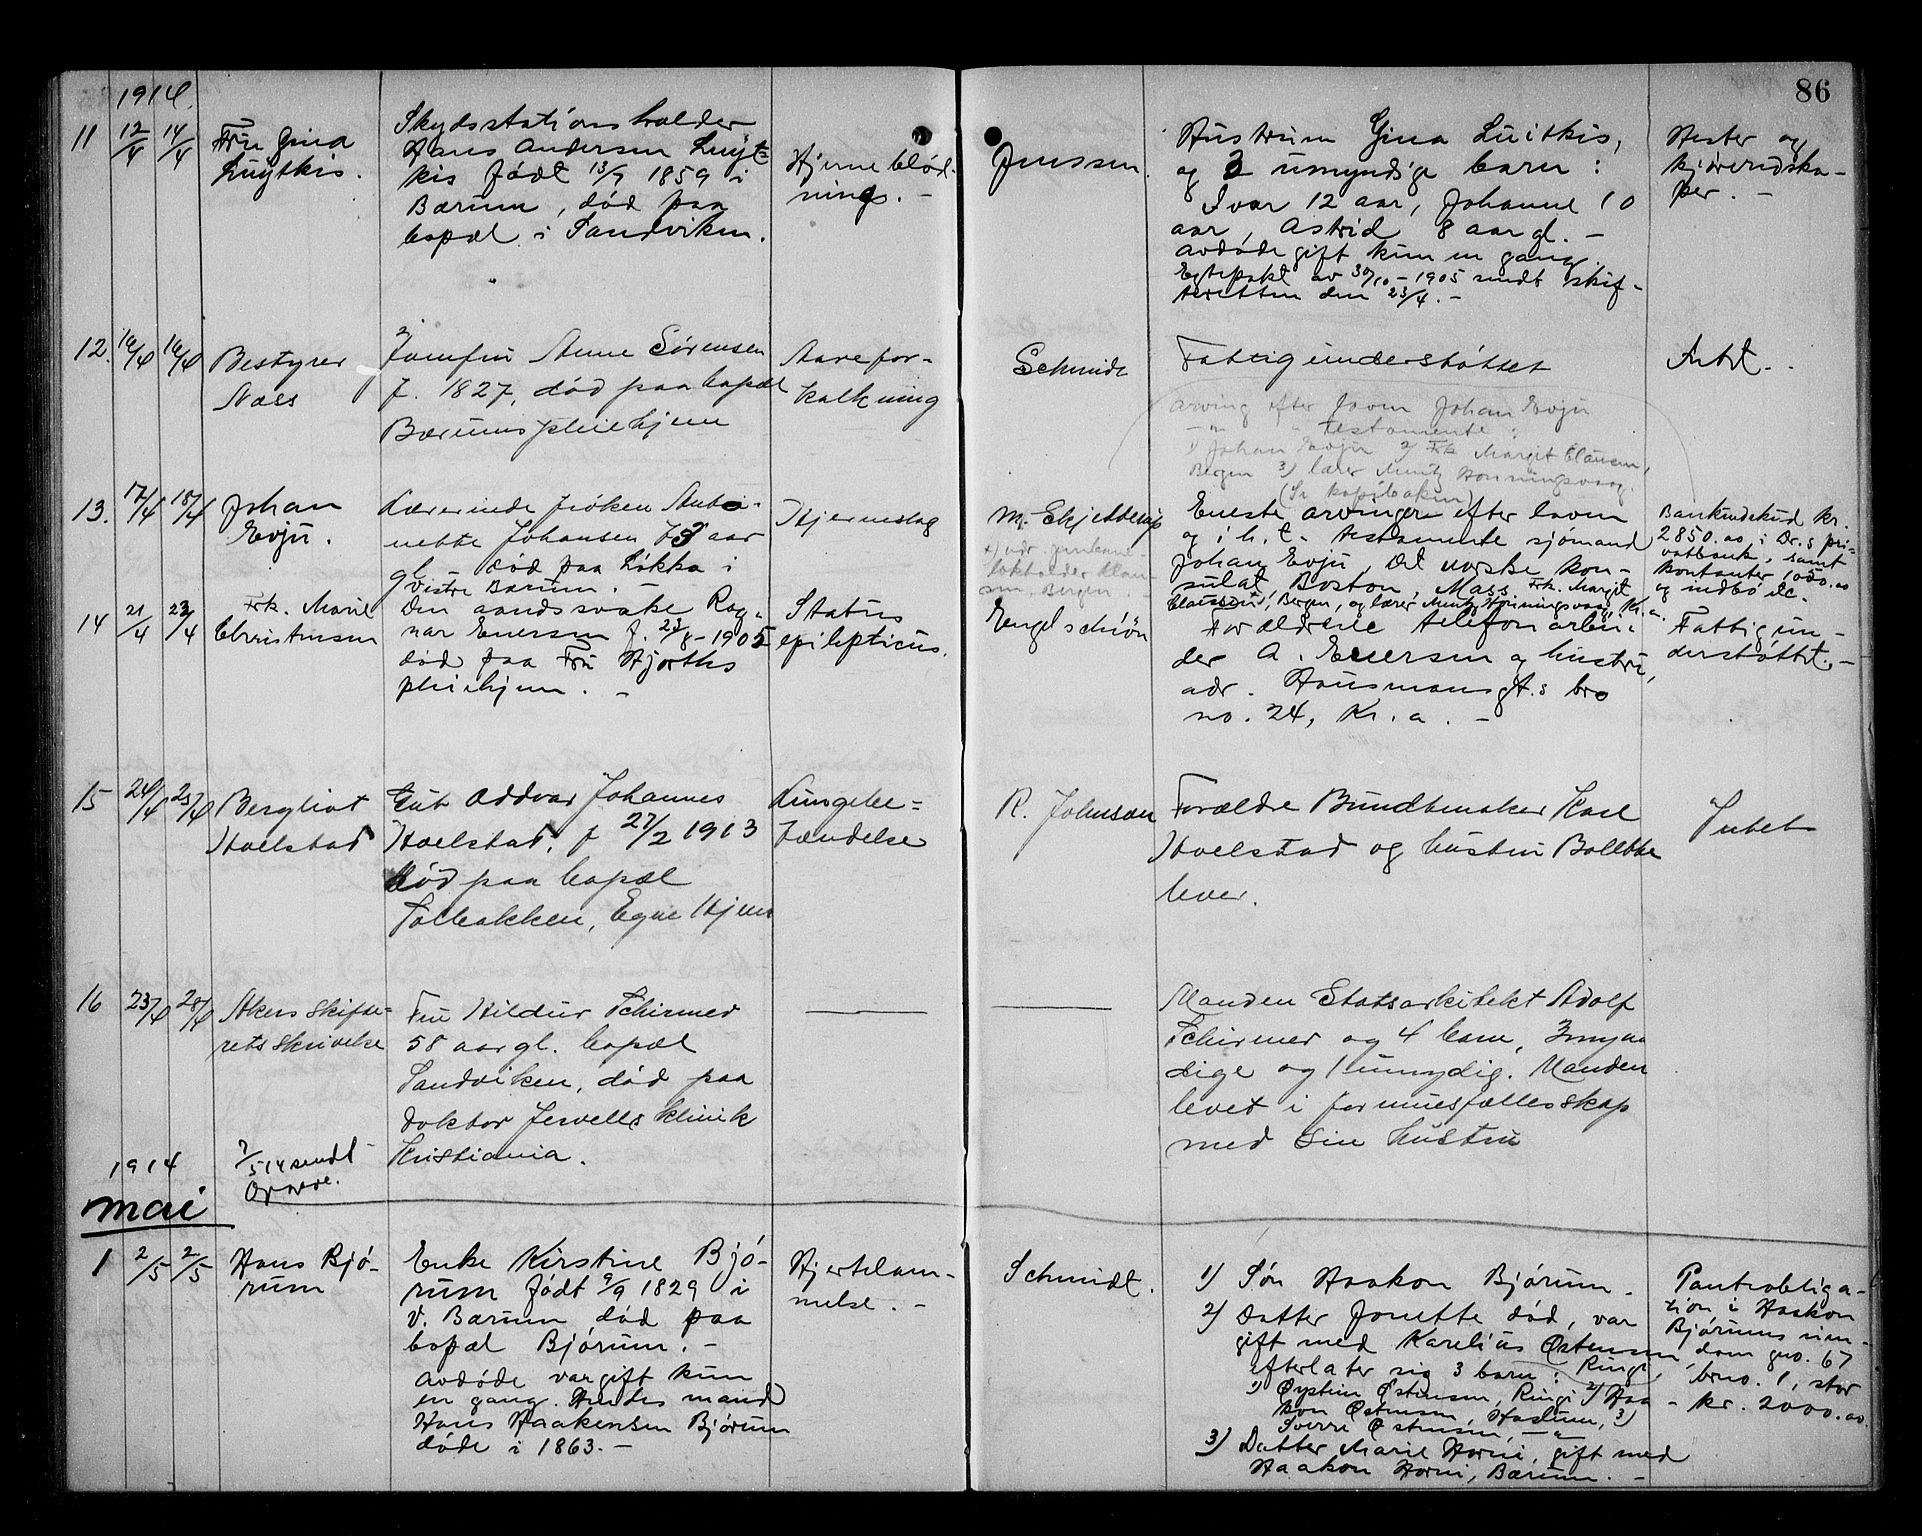 86
1914.
11 12/4 14/4 Fru Gina
Luytkis.
Skydsstationsholder
Hans Andersen Luyt=
kis født 13/9 1859 i
Bærum, død paa
bopæl i Sandviken.
Hjerneblød-
nings. -
Jenssen.
Hustrum Gina Luitkis,
og 3 umyndige barn:
Ivar 12 aar, Johanne 10
aar, Astrid 8 aar gl. -
avdøde gift kun en gang.
Egtepakt av 30/10 - 1905 sendt skif-
teretten den 23/4. -
Hester og
kjøreredska-
per. -
12. 16/4 16/4 Bestyrer
Næss
Jomfru Anne Sørensen
f. 1827, død paa bopæl
Bærums pleiehjem
Aarefor-
kalkning
Schmidt
Fattigunderstøttet
Intet.
arving efter loven Johan Evju
-"- " testamente:
1) Johan Evju 2) Frk Margit Clausen,
Bergen 3) lærer Muntz Honningsvaag.
(Se kopibaken)
13. 17/4 18/4 Johan
Evju.
Lærerinde frøken Anto-
nette Johansen 73 aar
gl. død paa Løkka i
Vestre Bærum.
Hjerneslag
M. Skjelderup
Eneste arvinger efter loven
og i h. t. testamente sjømand
Johan Evju, Det norske kon-
sulat, Boston, Mass, Frk. Margit
Claussen, Bergen, og lærer Muntz, Honningsvaag, Kr.a.
Bankindskud kr.
2850.00 i Dr.s pri-
vatbank, samt
kontanter 1000.00
og indbo etc.
14 21/4 22/4 Frk. Marie
Christensen
Den aandssvake Rag-
nar Enersen f. 23/8 - 1905
død paa Fru Hjorths
pleiehjem. -
Status
epilepticus.
Engelschiøn
Forældrene telefonarbei-
der A. Enersen og hustru,
adr. Hausmansgt.s bro
no. 24, Kr.a. -
Fattigun-
derstøttet. -
15 24/4 25/4 Bergliot
Hoelstad
Gut Oddvar Johannes
Hoelstad, f 27/2 1913
død paa bopæl
Solbakken, Egne Hjem
Lungebe=
tændelse
R. Johnsen
Forældre Bundtmaker Karl
Hoelstad og hustru Bollette
lever.
Intet
16 23/4 28/4 Akers Skifte-
rets skrivelse
Fru Hildur Schirmer
58 aar gl. bopæl
Sandviken, død paa
doktor Jervells klinik
Kristiania.
Manden Statsarkitekt Adolf
Schirmer og 4 barn, 3 myn
dige og 1 umyndig. Manden
levet i formuesfællesskap
med sin hustru
1914
7/5 14 sendt
Opgave.
mai
1 2/5 2/5 Hans Bjø-
rum
Enke Kirstine Bjø-
rum født 9/9 1829 i
V. Bærum, død paa
bopæl Bjørum. -
avdøde var gift kun
en gang. Hendes mand
Hans Haakensen Bjørum
døde i 1863. -
Hjertelam-
melse. -
Schmidt.
1) Søn Haakon Bjørum -
2) Datter Jonette død, var
gift med Karelius Østensen,
efterlater sig 3 barn: Ringi,
1) Øystein Østensen, Ringi 2) Haa-
kon Østensen, Haslum, 3)
Sverre Østensen, -"-
3) Datter Marie Horni, gift med
Haakon Horni, Bærum. -
Pantobliga-
tion i Haakon
Bjørums eien-
dom gno. 67
brno. 1, stor
kr. 2000.00